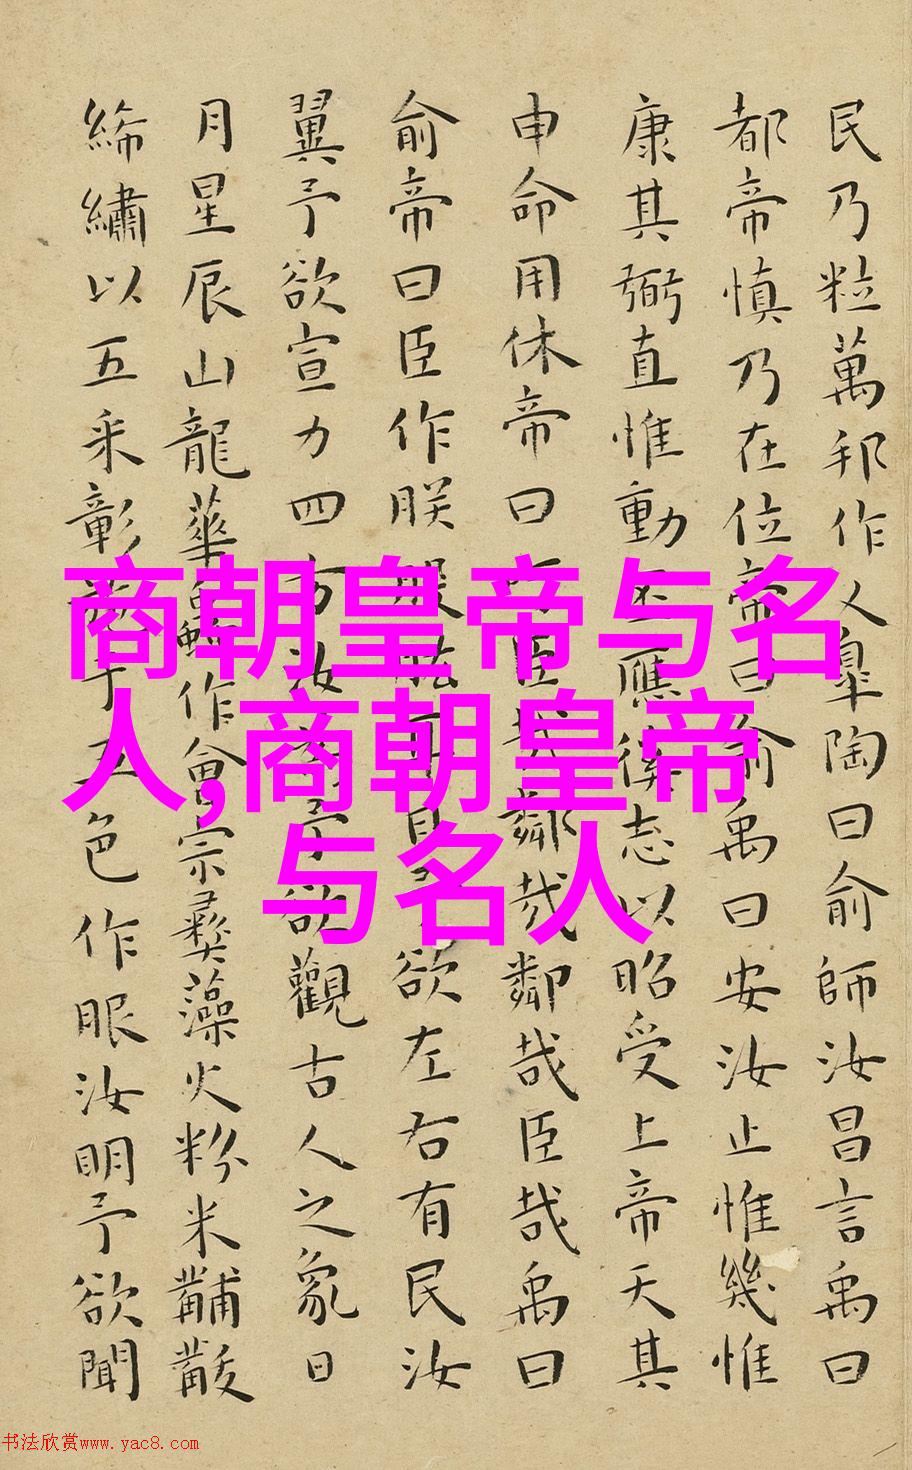 民乃粒萬邦作乂皐陶曰俞師汝昌言禹曰
都帝慎乃在位帝曰俞禹曰安汝止惟幾惟
康其弼直惟動丕應徯志以昭受上帝天其
申命用休帝曰臣哉鄰哉鄰哉臣哉禹曰
俞帝曰臣作朕股肱耳目予欲左右有民汝
翼予欲宣力四方汝予欲觀古人之象日
月星辰山龍華蟲作會宗彝藻火粉米黼黻
絺繡以五采彰于五色作服汝明予欲聞
商朝皇帝与名
人,商朝皇帝
与名人
书法欣赏www.yac8.com